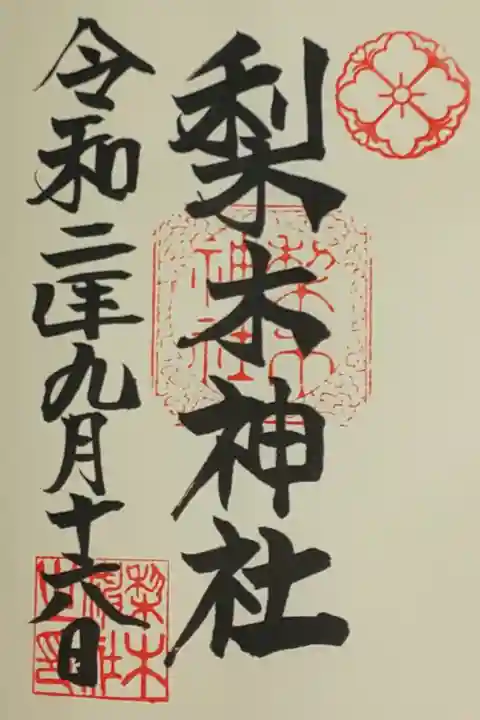 梨木神社
令和二年九月十六日
梨木
神社